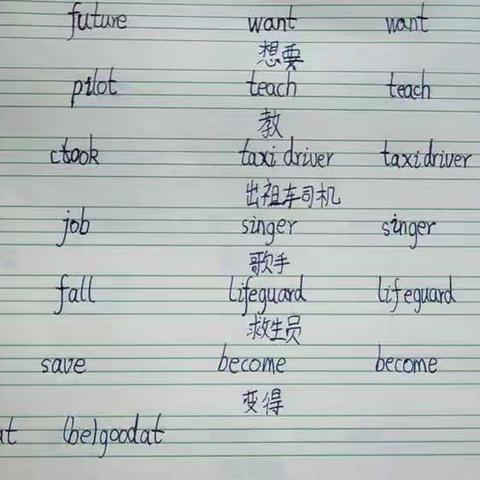 future want want
想要
pilot teach teach
教
cook taxi driver taxi driver
出祖车司机
job singer singer
歌手
fall lifeguard lifeguard
救生员
save become become
变得
at (be)good at